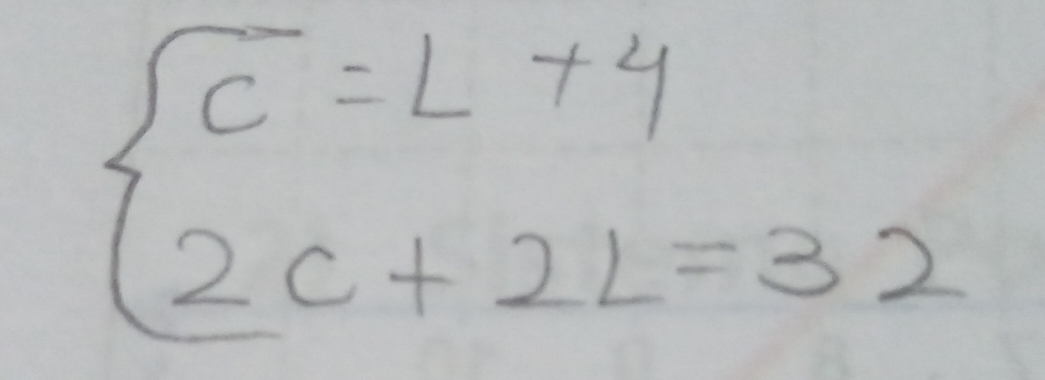 C = L + 4
2C + 2L = 32